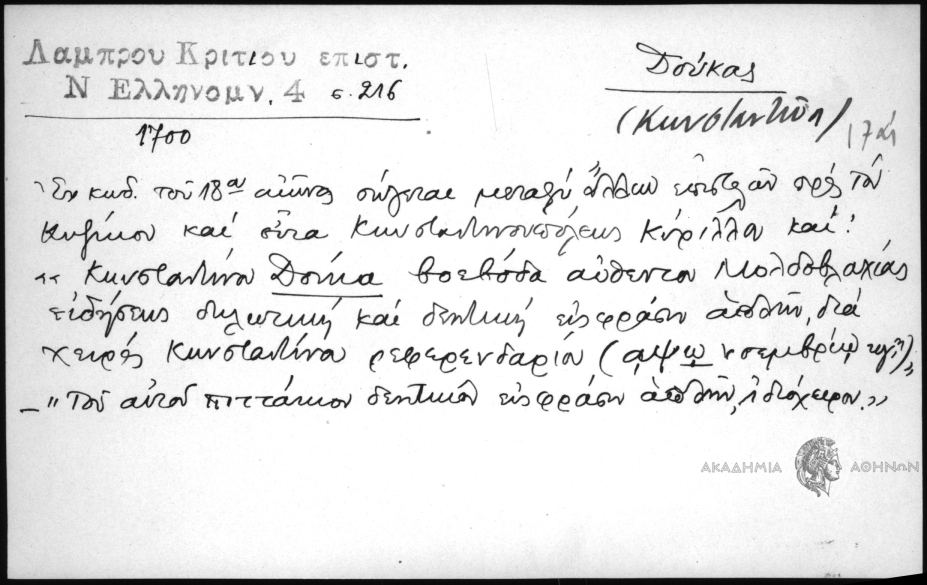 Λαμπρου Κριτιου επιστ.
Ν Ελληνομν. 4 σ. 216
Δούκας
(Κωνσταντῖνος)
1700
Ἐν κωδ. τοῦ 18ου αἰῶνος σώζεται μεταξύ ἄλλων ἐπιστολῶν πρός τόν
Κυζίκου καί εἶτα Κωνσταντινουπόλεως Κύριλλον καί:
"Κωνσταντίνῳ Δούκᾳ βοεβόδα αὐθέντῃ Μολδοβλαχίας
εἰδήσεως δηλωτική καί δεητική εἰς φράσιν ἁπλῆν, διά
χειρός Κωνσταντίνου ρεφερενδαρίου (αψω νοεμβρίῳ
– "Τοῦ αὐτοῦ πιττάκιον δεητικόν εἰς φράσιν ἁπλῆν, ἰδιόχειρον."
ΑΚΑΔΗΜΙΑ ΑΘΗΝΩΝ